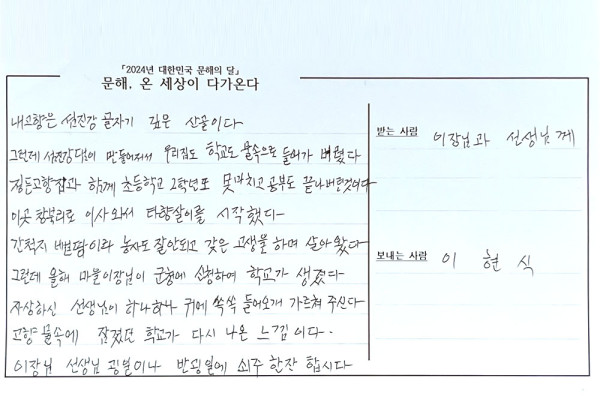 「2024년 대한민국 문해의 달」
문해, 온 세상이 다가온다
내고향은 섬진강 골자기 깊은 산골이다
그런데 섬진강댐이 만들어져서 우리집도 학교도 물속으로 들어가 버렸다
정든고향집과 함께 초등학교 2학년도 못마치고 공부도 끝나버렸것이다
이곳 창북리로 이사와서 타향살이를 시작했다
간척지 벼농사 농사도 잘안되고 갖은 고생을 하며 살아왔다
그런데 올해 마을이장님이 군청에 신청하여 학교가 생겼다
자상하신 선생님이 하나하나 귀에 쏙쏙 들어오게 가르쳐 주신다
고향 물속에 잠겼던 학교가 다시 나온 느낌이다.
이장님 선생님 공일이나 반공일에 쇠주 한잔 합시다
받는 사람 이장님과 선생님께
보내는 사람 이현식